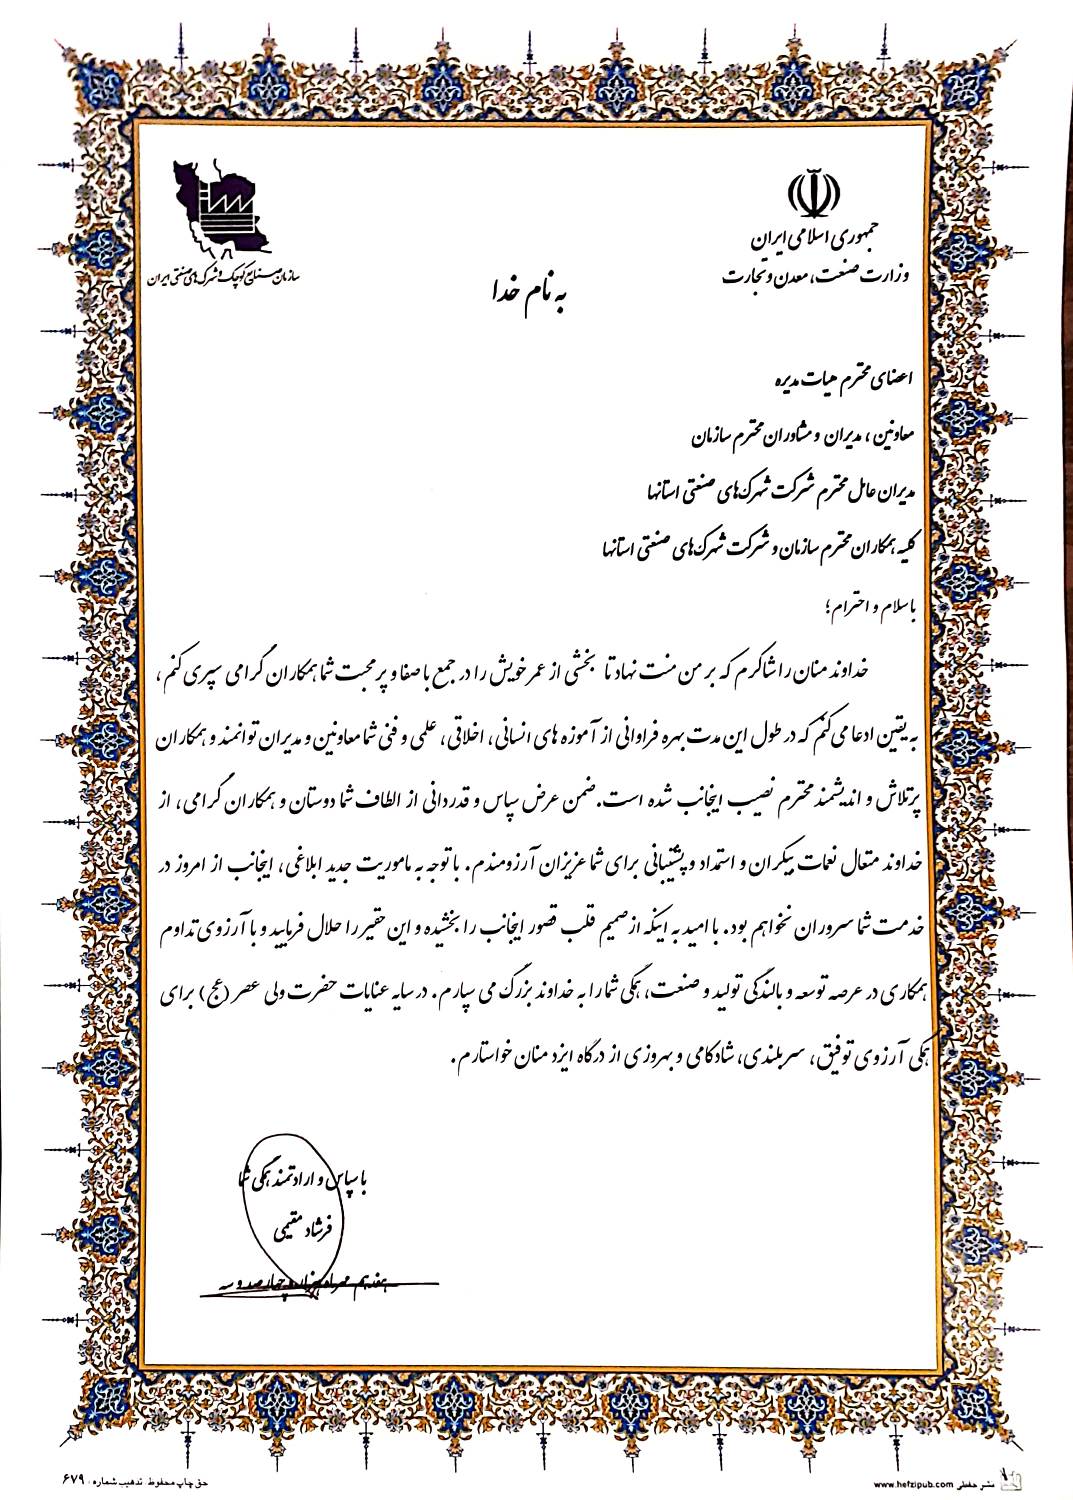 جمهوری اسلامی ایران
وزارت صنعت، معدن و تجارت
سازمان صنایع کوچک و شهرک‌های صنعتی ایران
به نام خدا
اعضای محترم هیات مدیره
معاونین ، مدیران و مشاوران محترم سازمان
مدیران عامل محترم شرکت شهرک‌های صنعتی استانها
کلیه همکاران محترم سازمان و شرکت شهرک‌های صنعتی استانها
با سلام و احترام؛
خداوند منان را شاکرم که بر من منت نهاد تا بخشی از عمر خویش را در جمع باصفا و پر محبت شما همکاران گرامی سپری کنم ،
به یقین ادعا می کنم که در طول این مدت بهره فراوانی از آموزه های انسانی، اخلاقی، علمی و فنی شما معاونین و مدیران توانمند و همکاران
پرتلاش و اندیشمند محترم نصیب اینجانب شده است. ضمن عرض سپاس و قدردانی از الطاف شما دوستان و همکاران گرامی، از
خداوند متعال نعمات بیکران و استمداد و پشتیبانی برای شما عزیزان آرزومندم. با توجه به ماموریت جدید ابلاغی، اینجانب از امروز در
خدمت شما سروران نخواهم بود. با امید به اینکه از صمیم قلب قصور اینجانب را بخشیده و این حقیر را حلال فرمایید و با آرزوی تداوم
همکاری در عرصه توسعه و بالندگی تولید و صنعت، همگی شما را به خداوند بزرگ می سپارم. در سایه عنایات حضرت ولی عصر (عج) برای
همگی آرزوی توفیق، سربلندی، شادکامی و بهروزی از درگاه ایزد منان خواستارم.
با سپاس و ارادتمند همگی شما
فرشاد مقیمی
هفدهم مهرماه هزار و چهارصد و سه
حق چاپ محفوظ تذهیب شماره: ۶۷۹
نشر حفظی www.hefzipub.com